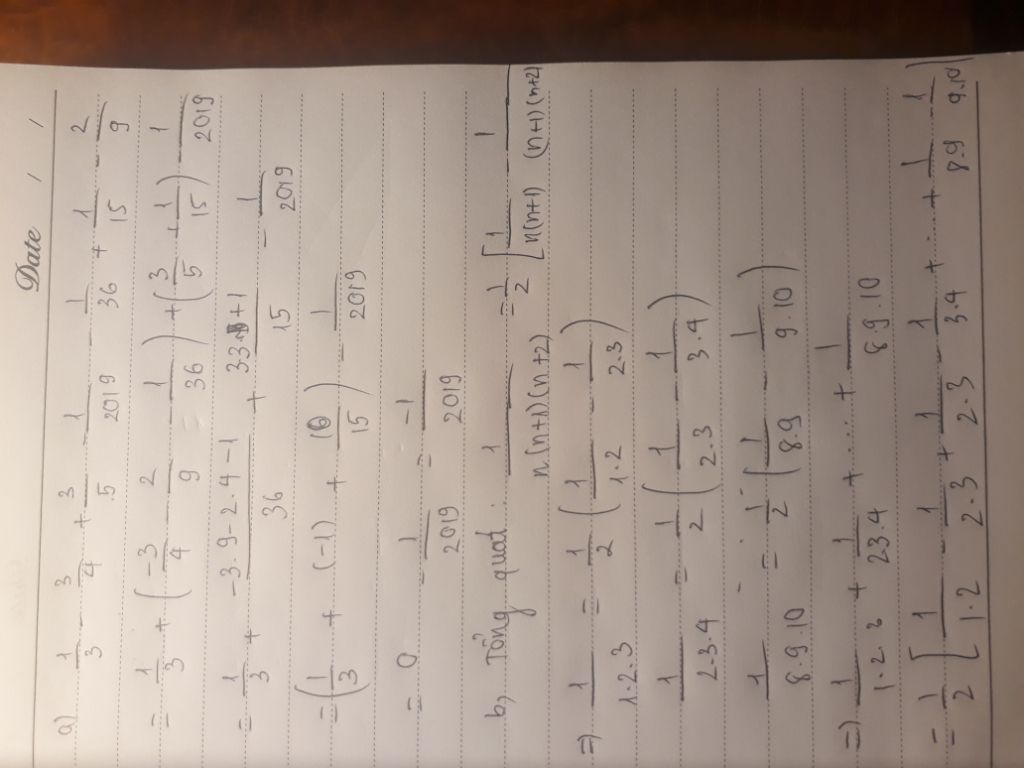 Date / /
a) 1/3 - 3/4 + 3/5 - 1/2019 - 1/36 + 1/15 - 2/9
= 1/3 + (-3/4 - 2/9 - 1/36) + (3/5 + 1/15) - 1/2019
= 1/3 + (-3.9-2.4-1)/36 + (3.3+1)/15 - 1/2019
= (1/3 + (-1) + 10/15) - 1/2019
= 0 - 1/2019 = -1/2019
b, Tổng quát : 1/n(n+1)(n+2) = 1/2 [1/n(n+1) - 1/(n+1)(n+2)
=) 1/1.2.3 = 1/2 (1/1.2 - 1/2.3)
1/2.3.4 = 1/2 (1/2.3 - 1/3.4)
1/8.9.10 = 1/2 (1/89 - 1/9.10)
=) 1/1.2.3 + 1/23.4 + .... + 1/8.9.10
= 1/2 [1/1.2 - 1/2.3 + 1/2.3 - 1/3.4 + .... + 1/89 - 1/9.10]